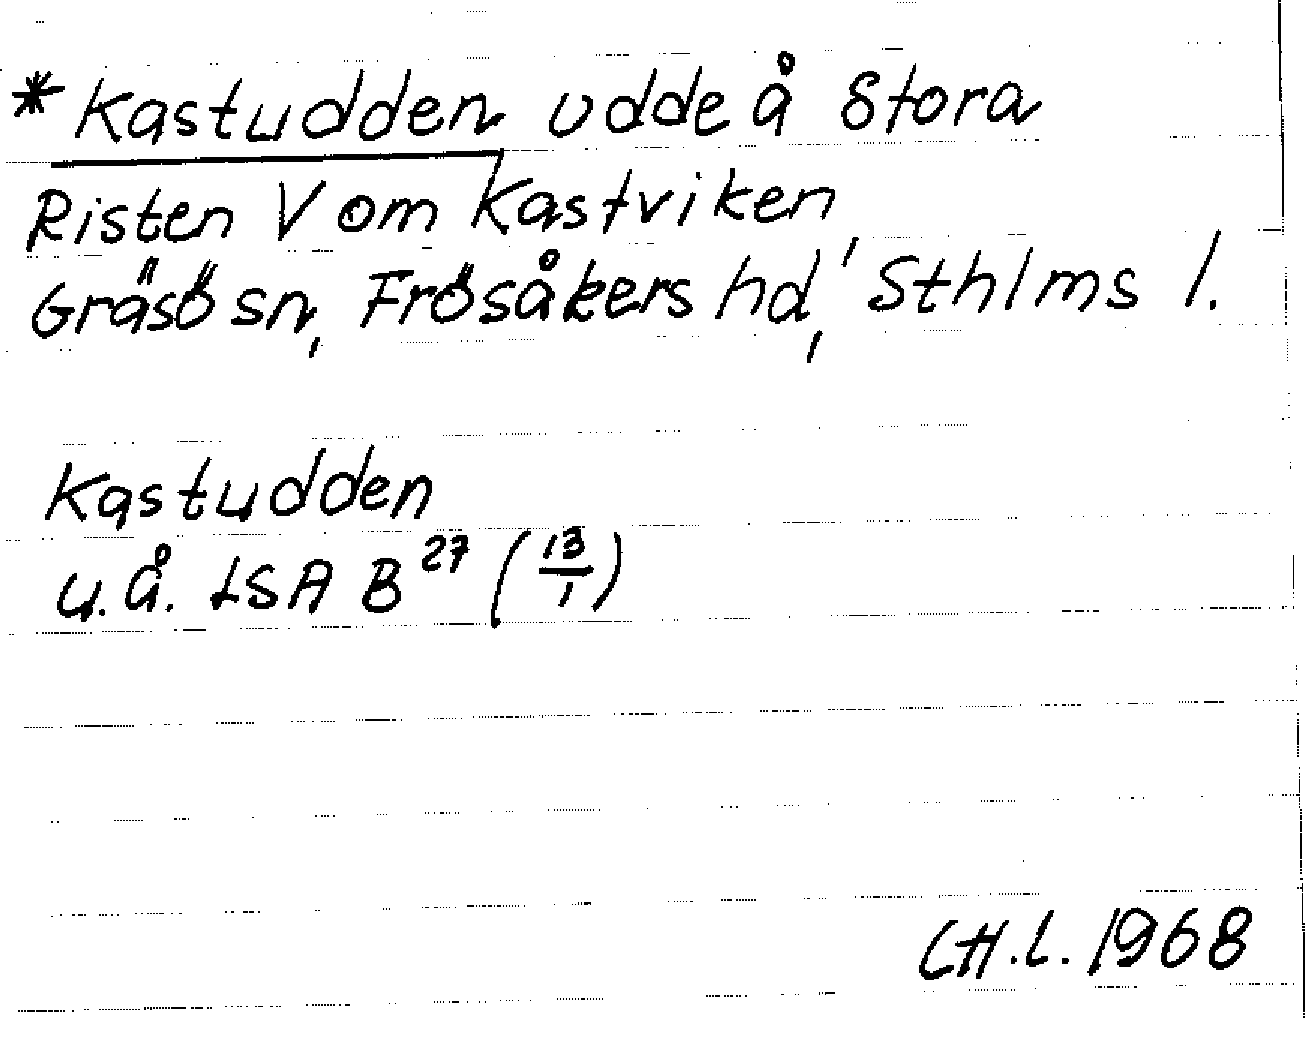 *Kastudden udde å Stora
Risten V om Kastviken,
Gräsö sn, Frösåkers hd, Sthlms l.
Kastudden
u.å. LSA B27 (13/1)
CH.L. 1968